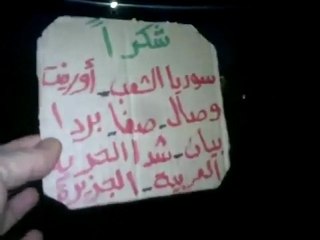 شكراً
سوريا الشعب_أورينت
وصال_صفا_بردا
بيان_شدا الحرية
العربية_الجزيرة